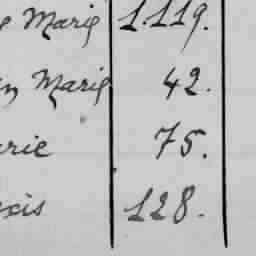 Marie 1.119.
Marie 42.
arie 75.
xis 128.